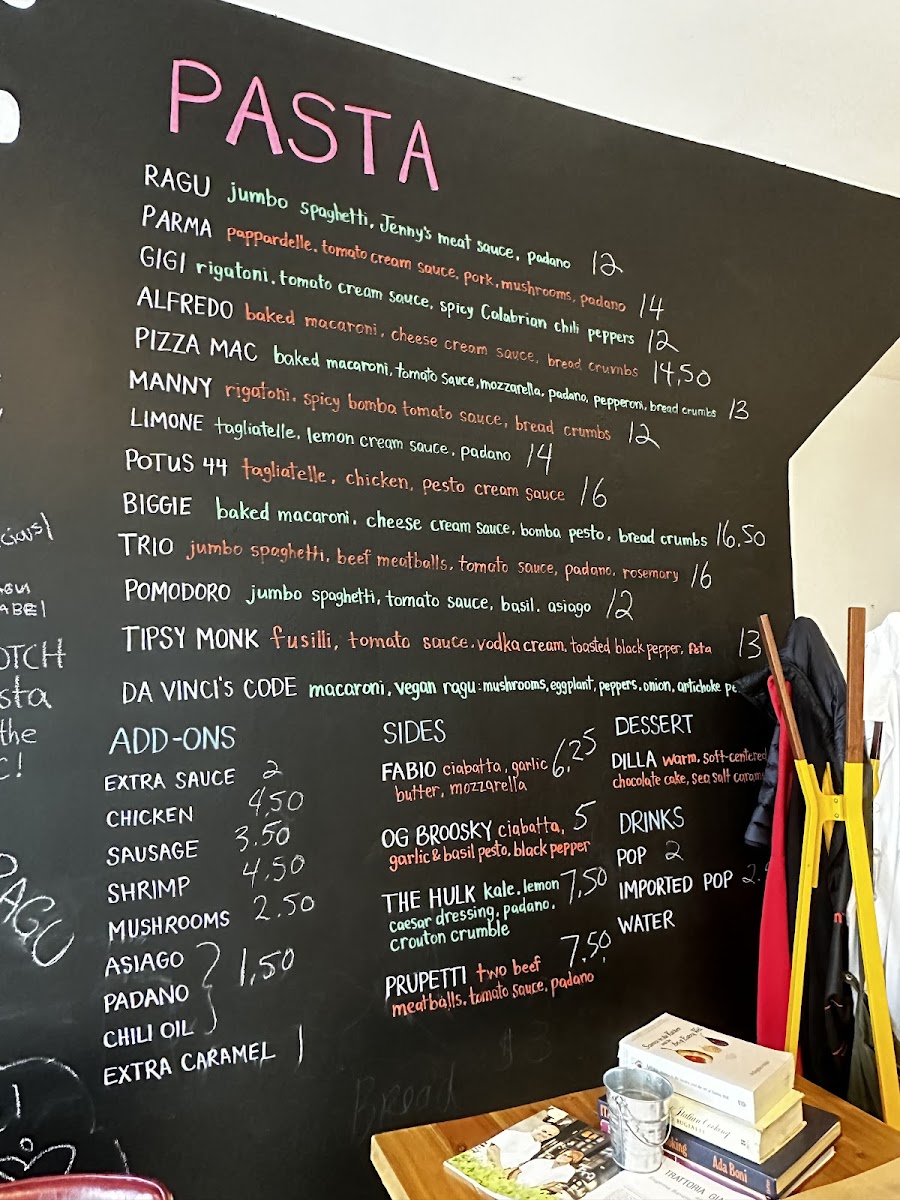 PASTA
RAGU jumbo spaghetti, Jenny's meat sauce, padano 12
PARMA pappardelle, tomato cream sauce, pork, mushrooms, padano 14
GIGI rigatoni, tomato cream sauce, spicy Calabrian chili peppers 12
ALFREDO baked macaroni, cheese cream sauce, bread crumbs 14,50
PIZZA MAC baked macaroni, tomato sauce, mozzarella, padano, pepperoni, bread crumbs 13
MANNY rigatoni, spicy bomba tomato sauce, bread crumbs 12
LIMONE tagliatelle, lemon cream sauce, padano 14
POTUS 44 tagliatelle, chicken, pesto cream sauce 16
BIGGIE baked macaroni, cheese cream sauce, bomba pesto, bread crumbs 16.50
TRIO jumbo spaghetti, beef meatballs, tomato sauce, padano, rosemary 16
POMODORO jumbo spaghetti, tomato sauce, basil, asiago 12
TIPSY MONK fusilli, tomato sauce, vodka cream, toasted black pepper, feta 13
DA VINCI'S CODE macaroni, vegan ragu: mushrooms, eggplant, peppers, onion, artichoke pe
ADD-ONS
EXTRA SAUCE 2
CHICKEN 4,50
SAUSAGE 3.50
SHRIMP 4,50
MUSHROOMS 2.50
ASIAGO
PADANO 1,50
CHILI OIL
EXTRA CARAMEL 1
SIDES
FABIO ciabatta, garlic 6,25
butter, mozzarella
OG BROOSKY ciabatta, 5
garlic & basil pesto, black pepper
THE HULK kale, lemon 7,50
caesar dressing, padano,
crouton crumble
PRUPETTI two beef 7,50
meatballs, tomato sauce, padano
Bread $3
DESSERT
DILLA warm, soft-centered
chocolate cake, sea salt caram
DRINKS
POP 2
IMPORTED POP 2.
WATER
OTCH
sta
the
C!
RAGU
Italian Cooking
Ada Boni
TRATTORIA